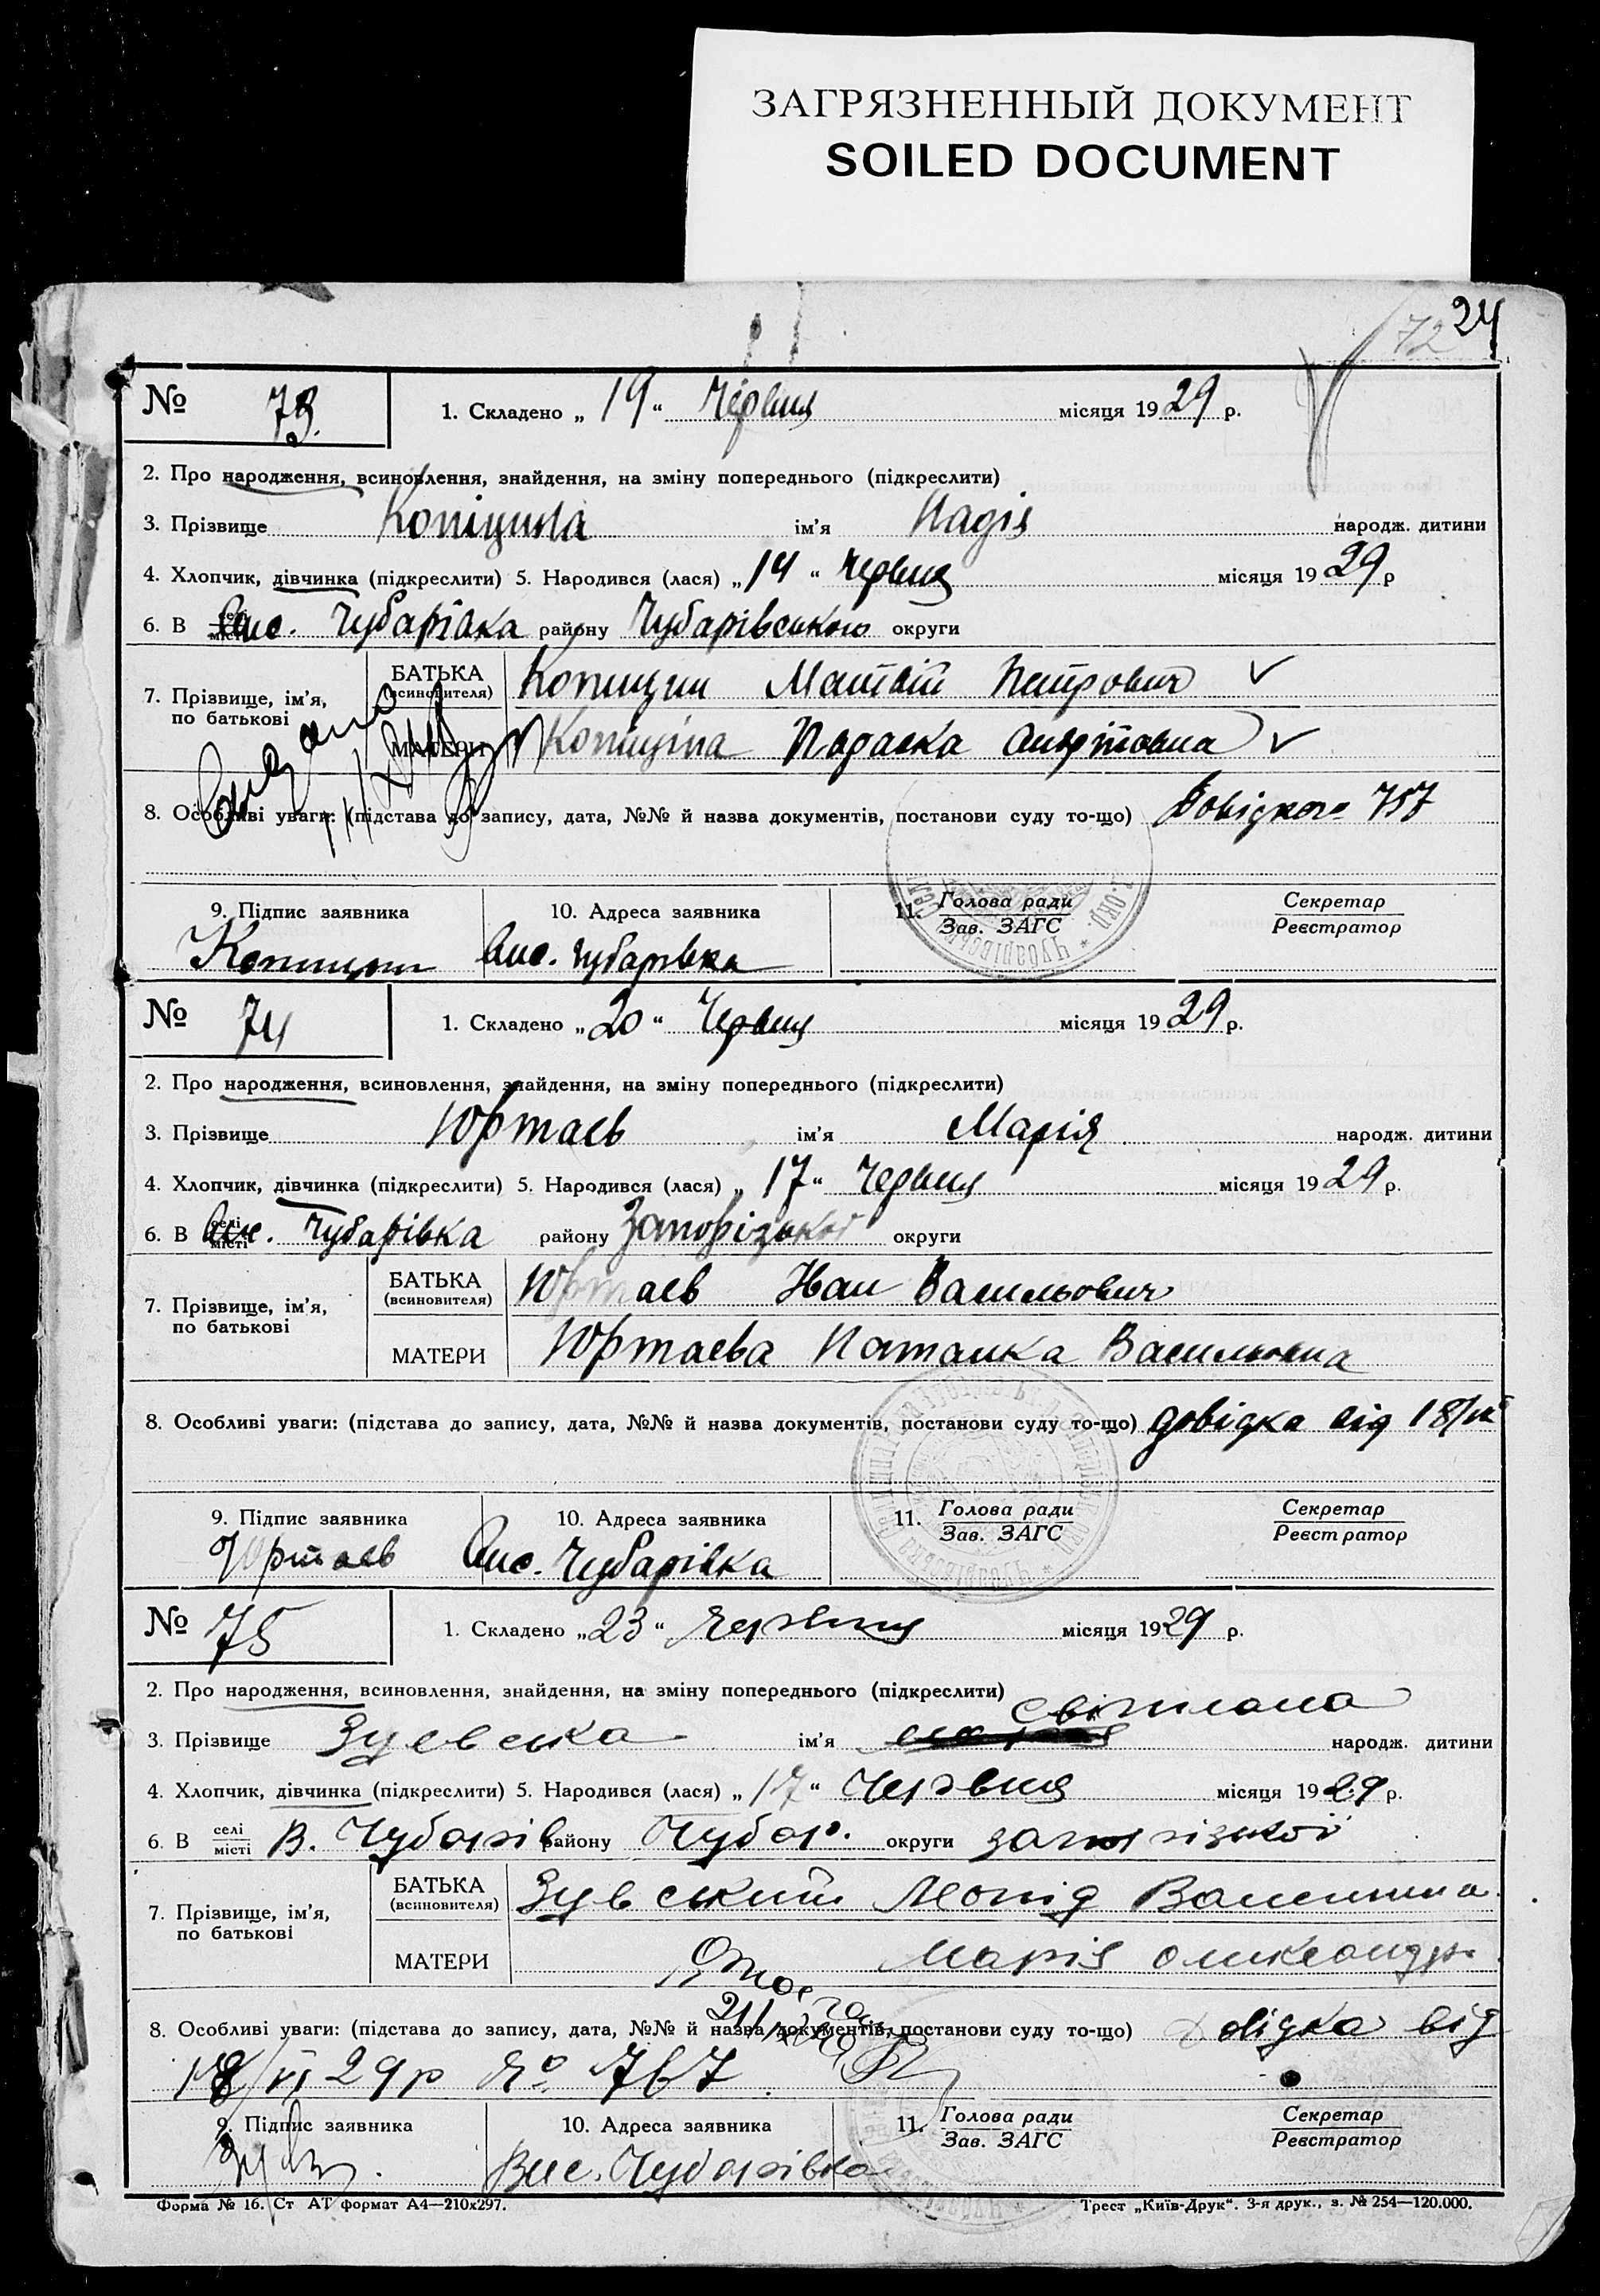 ЗАГРЯЗНЕННЫЙ ДОКУМЕНТ
SOILED DOCUMENT
72 24
№ 73. 1. Складено „ 19 “ Червня місяця 1929 р.
2. Про народження, всиновлення, знайдення, на зміну попереднього (підкреслити)
3. Прізвище ім'я Надія народж. дитини
4. Хлопчик, дівчинка (підкреслити) 5. Народився (лася) „ 14 “ Червня місяця 1929 р
6. В селі місті Чубарівка району Чубарівського округи
7. Прізвище, ім'я, по батькові
БАТЬКА (всиновителя) Матвій Петрович
МАТЕРИ Параска
8. Особливі уваги: (підстава до запису, дата, №№ й назва документів, постанови суду то-що) Довідка 757
9. Підпис заявника 10. Адреса заявника 11. Голова ради Зав. ЗАГС Секретар Реєстратор
Вис. Чубарівка
№ 74 1. Складено „ 20 “ Червня місяця 1929 р.
2. Про народження, всиновлення, знайдення, на зміну попереднього (підкреслити)
3. Прізвище Юртаєв ім'я Марія народж. дитини
4. Хлопчик, дівчинка (підкреслити) 5. Народився (лася) „ 17 “ Червня місяця 1929 р.
6. В селі місті Вис. Чубарівка району Запорізької округи
7. Прізвище, ім'я, по батькові
БАТЬКА (всиновителя) Юртаєв Иван Васильович
МАТЕРИ Юртаєва Наталка Васильовна
8. Особливі уваги: (підстава до запису, дата, №№ й назва документів, постанови суду то-що) довідка від 18/VI
9. Підпис заявника 10. Адреса заявника 11. Голова ради Зав. ЗАГС Секретар Реєстратор
Юртаєв Вис. Чубарівка
№ 75 1. Складено „ 23 “ Червня місяця 1929 р.
2. Про народження, всиновлення, знайдення, на зміну попереднього (підкреслити)
Світлана
3. Прізвище Зуєвська ім'я народж. дитини
4. Хлопчик, дівчинка (підкреслити) 5. Народився (лася) „ 17 “ Червня місяця 1929 р.
6. В селі місті В. Чубарів району Чубар. округи запорізької
7. Прізвище, ім'я, по батькові
БАТЬКА (всиновителя) Зуєвський
МАТЕРИ Марія Олександр.
8. Особливі уваги: (підстава до запису, дата, №№ й назва документів, постанови суду то-що) довідка від
18/VI 29р № 767
9. Підпис заявника 10. Адреса заявника 11. Голова ради Зав. ЗАГС Секретар Реєстратор
Вис. Чубарівка
Форма № 16. Ст АТ формат А4—210х297. Трест „Київ-Друк“. 3-я друк., з. № 254—120.000.